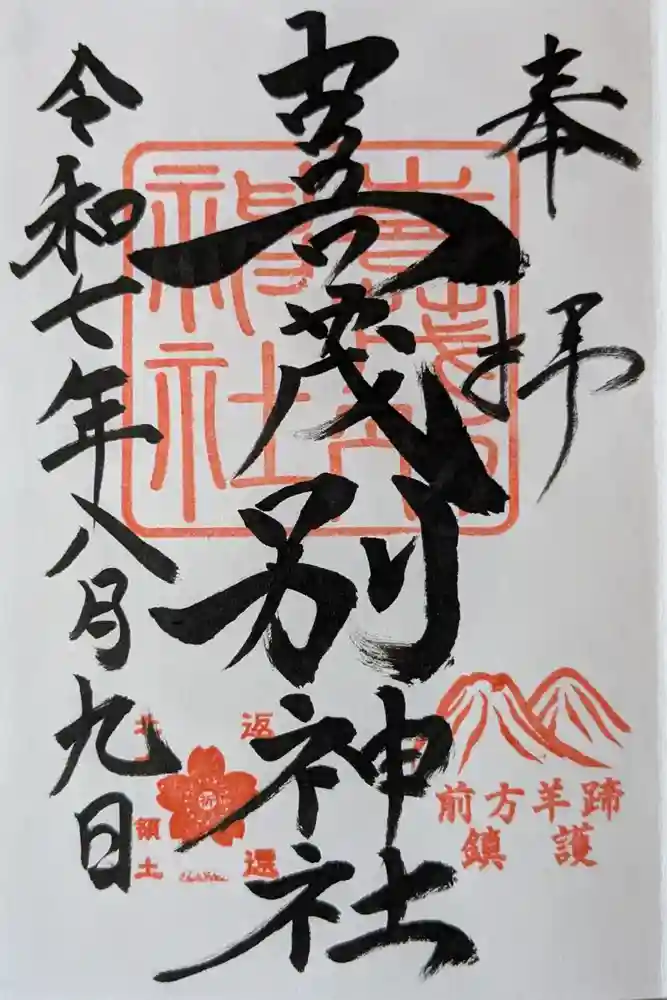 奉拝
喜茂別神社
令和七年八月九日
喜茂別
神社
前方羊蹄
鎮護
返還
祈
北
領土